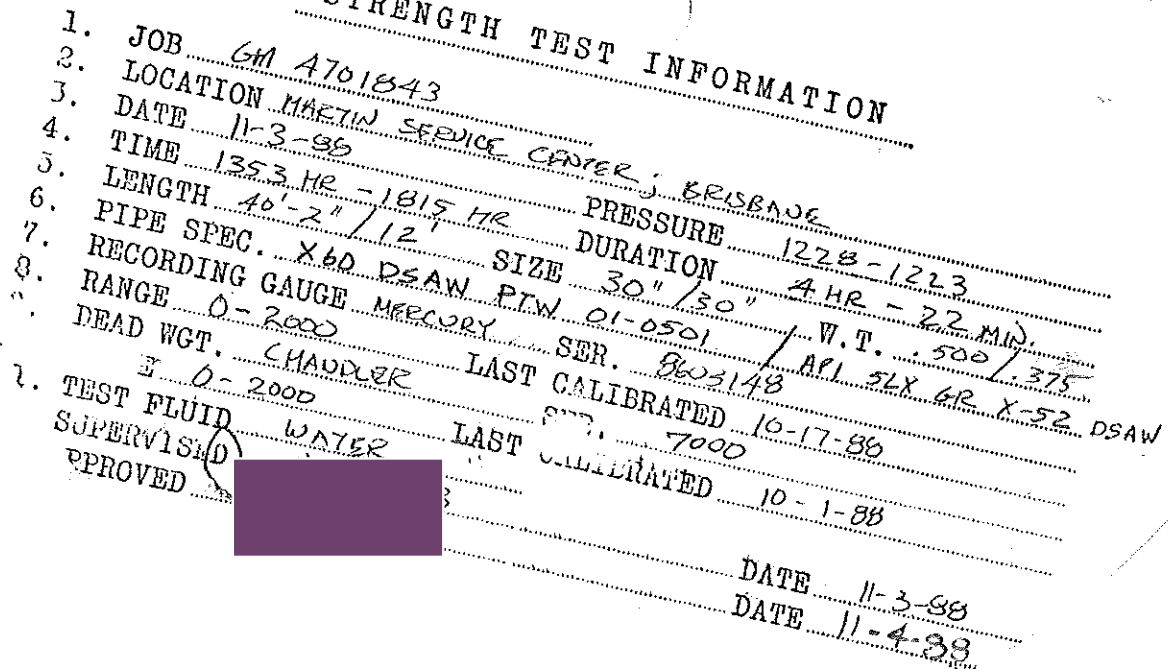 STRENGTH TEST INFORMATION
1. JOB GM 4701843
2. LOCATION MARTIN SERVICE CENTER; BRISBANE
3. DATE 11-3-88 PRESSURE 1228-1223
4. TIME 1353 HR - 1815 HR DURATION 4 HR - 22 MIN.
5. LENGTH 40'-2" / 12' SIZE 30"/30" W.T. .500/.375
6. PIPE SPEC. X60 DSAW PTW 01-0501 / API 5LX GR X-52 DSAW
7. RECORDING GAUGE MERCURY SER. 8603148
8. RANGE 0-2000 LAST CALIBRATED 10-17-88
DEAD WGT. CHANDLER 7000
0-2000 LAST CALIBRATED 10-1-88
TEST FLUID WATER
SUPERVISED DATE 11-3-88
APPROVED DATE 11-4-88